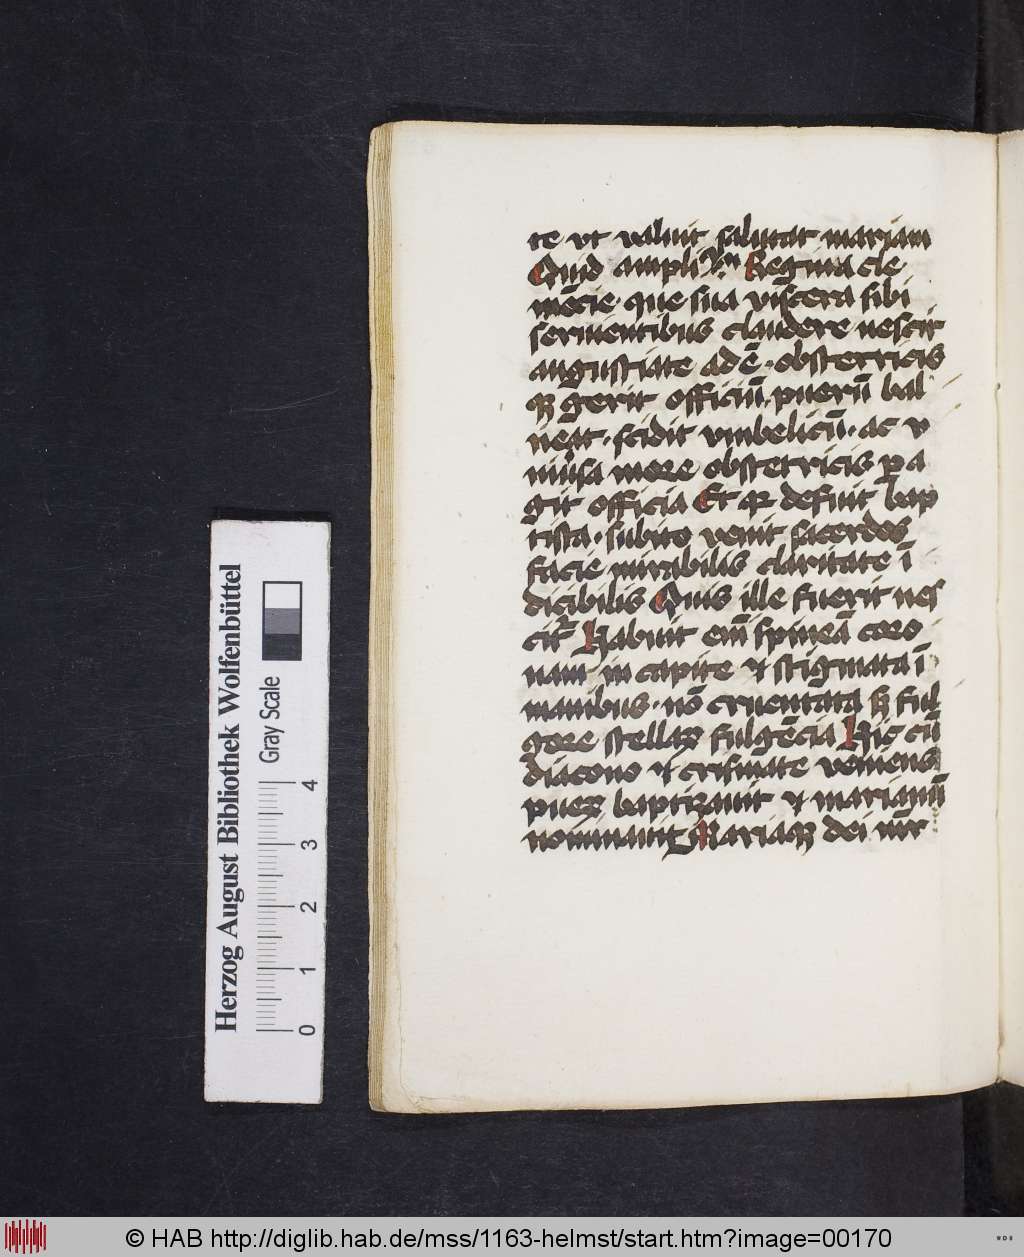 te vt valuit salutat mariam
Quid ampli Regina cle
mēcie · que sua viscera sibi
seruientibus claudere nescit
angustiate adē · obstetricis
qꝫ gerit officiū · puerū bal
neat · scidit vmbelicū · ac v
niu̾sa more obstetricis ꝑa
git officia Et qꝛ defuit bap
tista · subito venit sacerdos
facie mirabilis claritate ī
dicibilis Quis ille fuerit nes
cit᷑ Habuit em̄ spineā coro
nam in capite ⁊ stigmata ī
manibus · nō cruentata sꝫ ful
gore stellaꝝ fulgēcia Hic cū
diacono ⁊ crismate veniens
pueꝝ baptizauit ⁊ marianū
nominauit Mariaqꝫ dei mr̄
Herzog August Bibliothek Wolfenbüttel
Gray Scale
0 1 2 3 4
© HAB http://diglib.hab.de/mss/1163-helmst/start.htm?image=00170